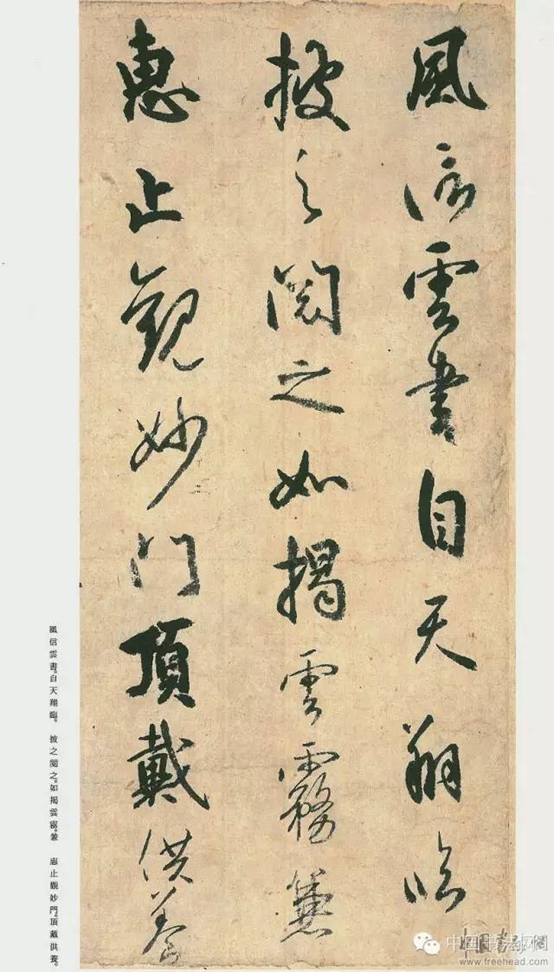 風信雲書自天翔臨
披之閱之如揭雲霧兼
惠止觀妙門頂戴供養
風信雲書。自天翔臨。 披之閱之。如揭雲霧。兼 惠止觀妙門。頂戴供養。
中国书法网
www.freehead.com